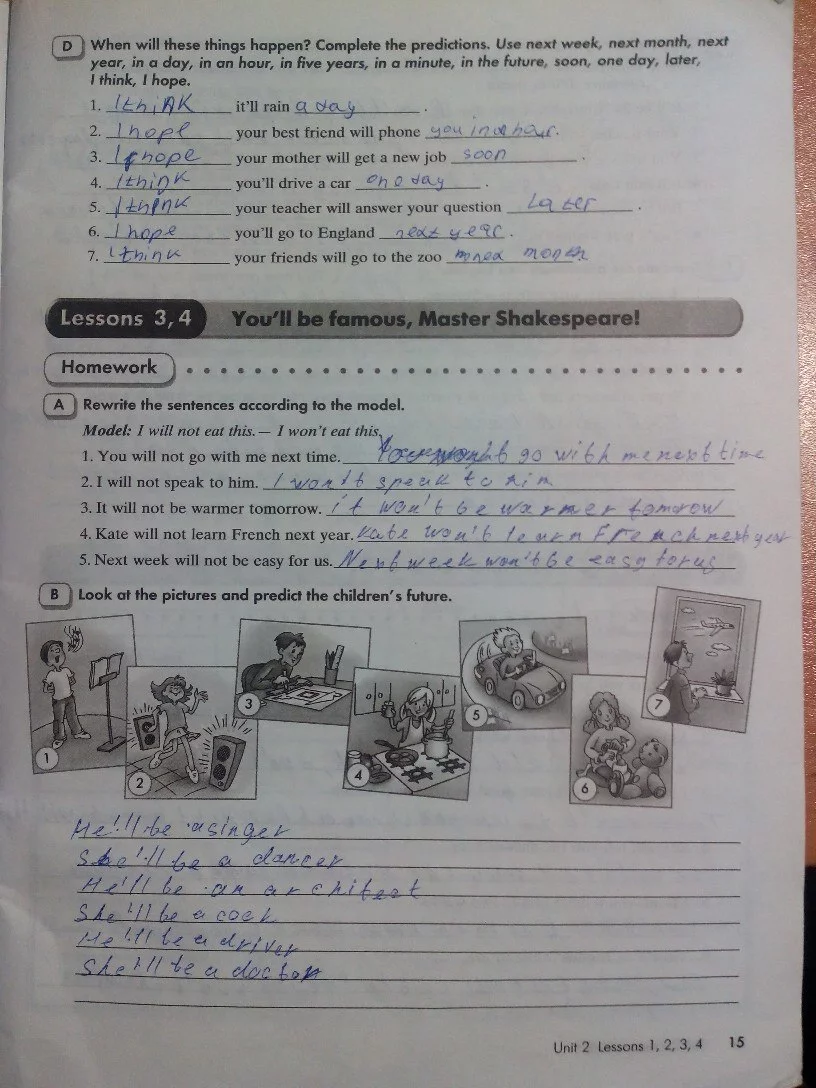 D When will these things happen? Complete the predictions. Use next week, next month, next
year, in a day, in an hour, in five years, in a minute, in the future, soon, one day, later,
I think, I hope.
1. I think it'll rain a day .
2. I hope your best friend will phone you in an hour.
3. I hope your mother will get a new job soon .
4. I think you'll drive a car one day .
5. I think your teacher will answer your question Later .
6. I hope you'll go to England next year .
7. I think your friends will go to the zoo month
Lessons 3, 4 You'll be famous, Master Shakespeare!
Homework
A Rewrite the sentences according to the model.
Model: I will not eat this. — I won't eat this.
1. You will not go with me next time. You won't go with me next time
2. I will not speak to him. I won't speak to him
3. It will not be warmer tomorrow. it won't be warmer tomrow
4. Kate will not learn French next year. Kate won't learn French next year
5. Next week will not be easy for us. Next week won't be easy for us
B Look at the pictures and predict the children's future.
1
2
3
4
5
6
7
He'll be a singer
She'll be a dancer
He'll be an architect
She'll be a cock
He'll be a driver
She'll be a doctor
Unit 2 Lessons 1, 2, 3, 4 15